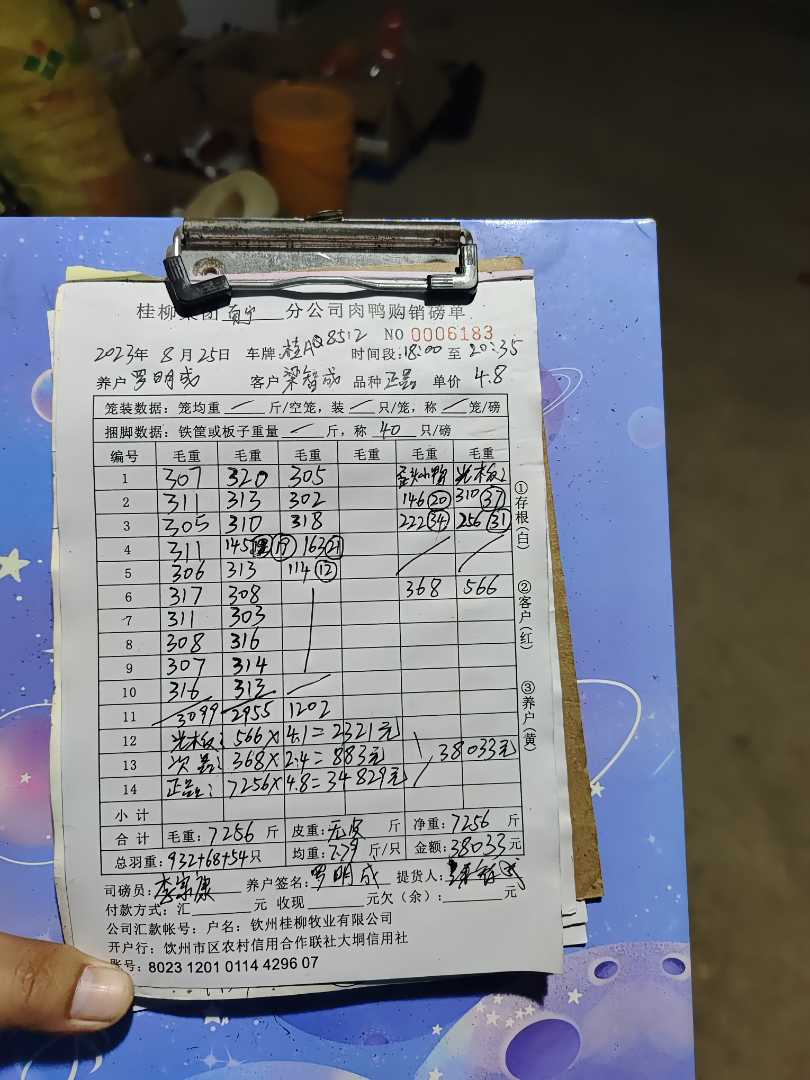 桂柳集团南宁分公司肉鸭购销磅单
NO 0006183
2023年 8月25日 车牌:桂AQ8512 时间段:18:00至20:35
养户罗明成 客户梁智成 品种正品 单价 4.8
笼装数据：笼均重 / 斤/空笼，装 / 只/笼，称 / 笼/磅
捆脚数据：铁筐或板子重量 / 斤，称 40 只/磅
编号 毛重 毛重 毛重 毛重 毛重 毛重
1 307 320 305 歪头小鸭 光板
2 311 313 302 146⑳ 310㊲
3 305 310 318 222㉞ 256㉛
4 311 145⑲ 163㉑
5 306 313 114⑫
6 317 308 368 566
7 311 303
8 308 316
9 307 314
10 316 313
11 3099 2955 1202
12 光板：566×4.1=2321元
13 次品：368×2.4=883元 38033元
14 正品：7256×4.8=34829元
小计
合计 毛重:7256斤 皮重:无皮 斤 净重:7256斤
总羽重:932+68+54只 均重:7.79斤/只 金额:38033元
司磅员:李家康 养户签名:罗明成 提货人:梁智成
付款方式：汇 元 收现 元欠（余）: 元
公司汇款帐号：户名：钦州桂柳牧业有限公司
开户行：钦州市区农村信用合作联社大垌信用社
账号：8023 1201 0114 4296 07
①存根(白)
②客户(红)
③养户(黄)